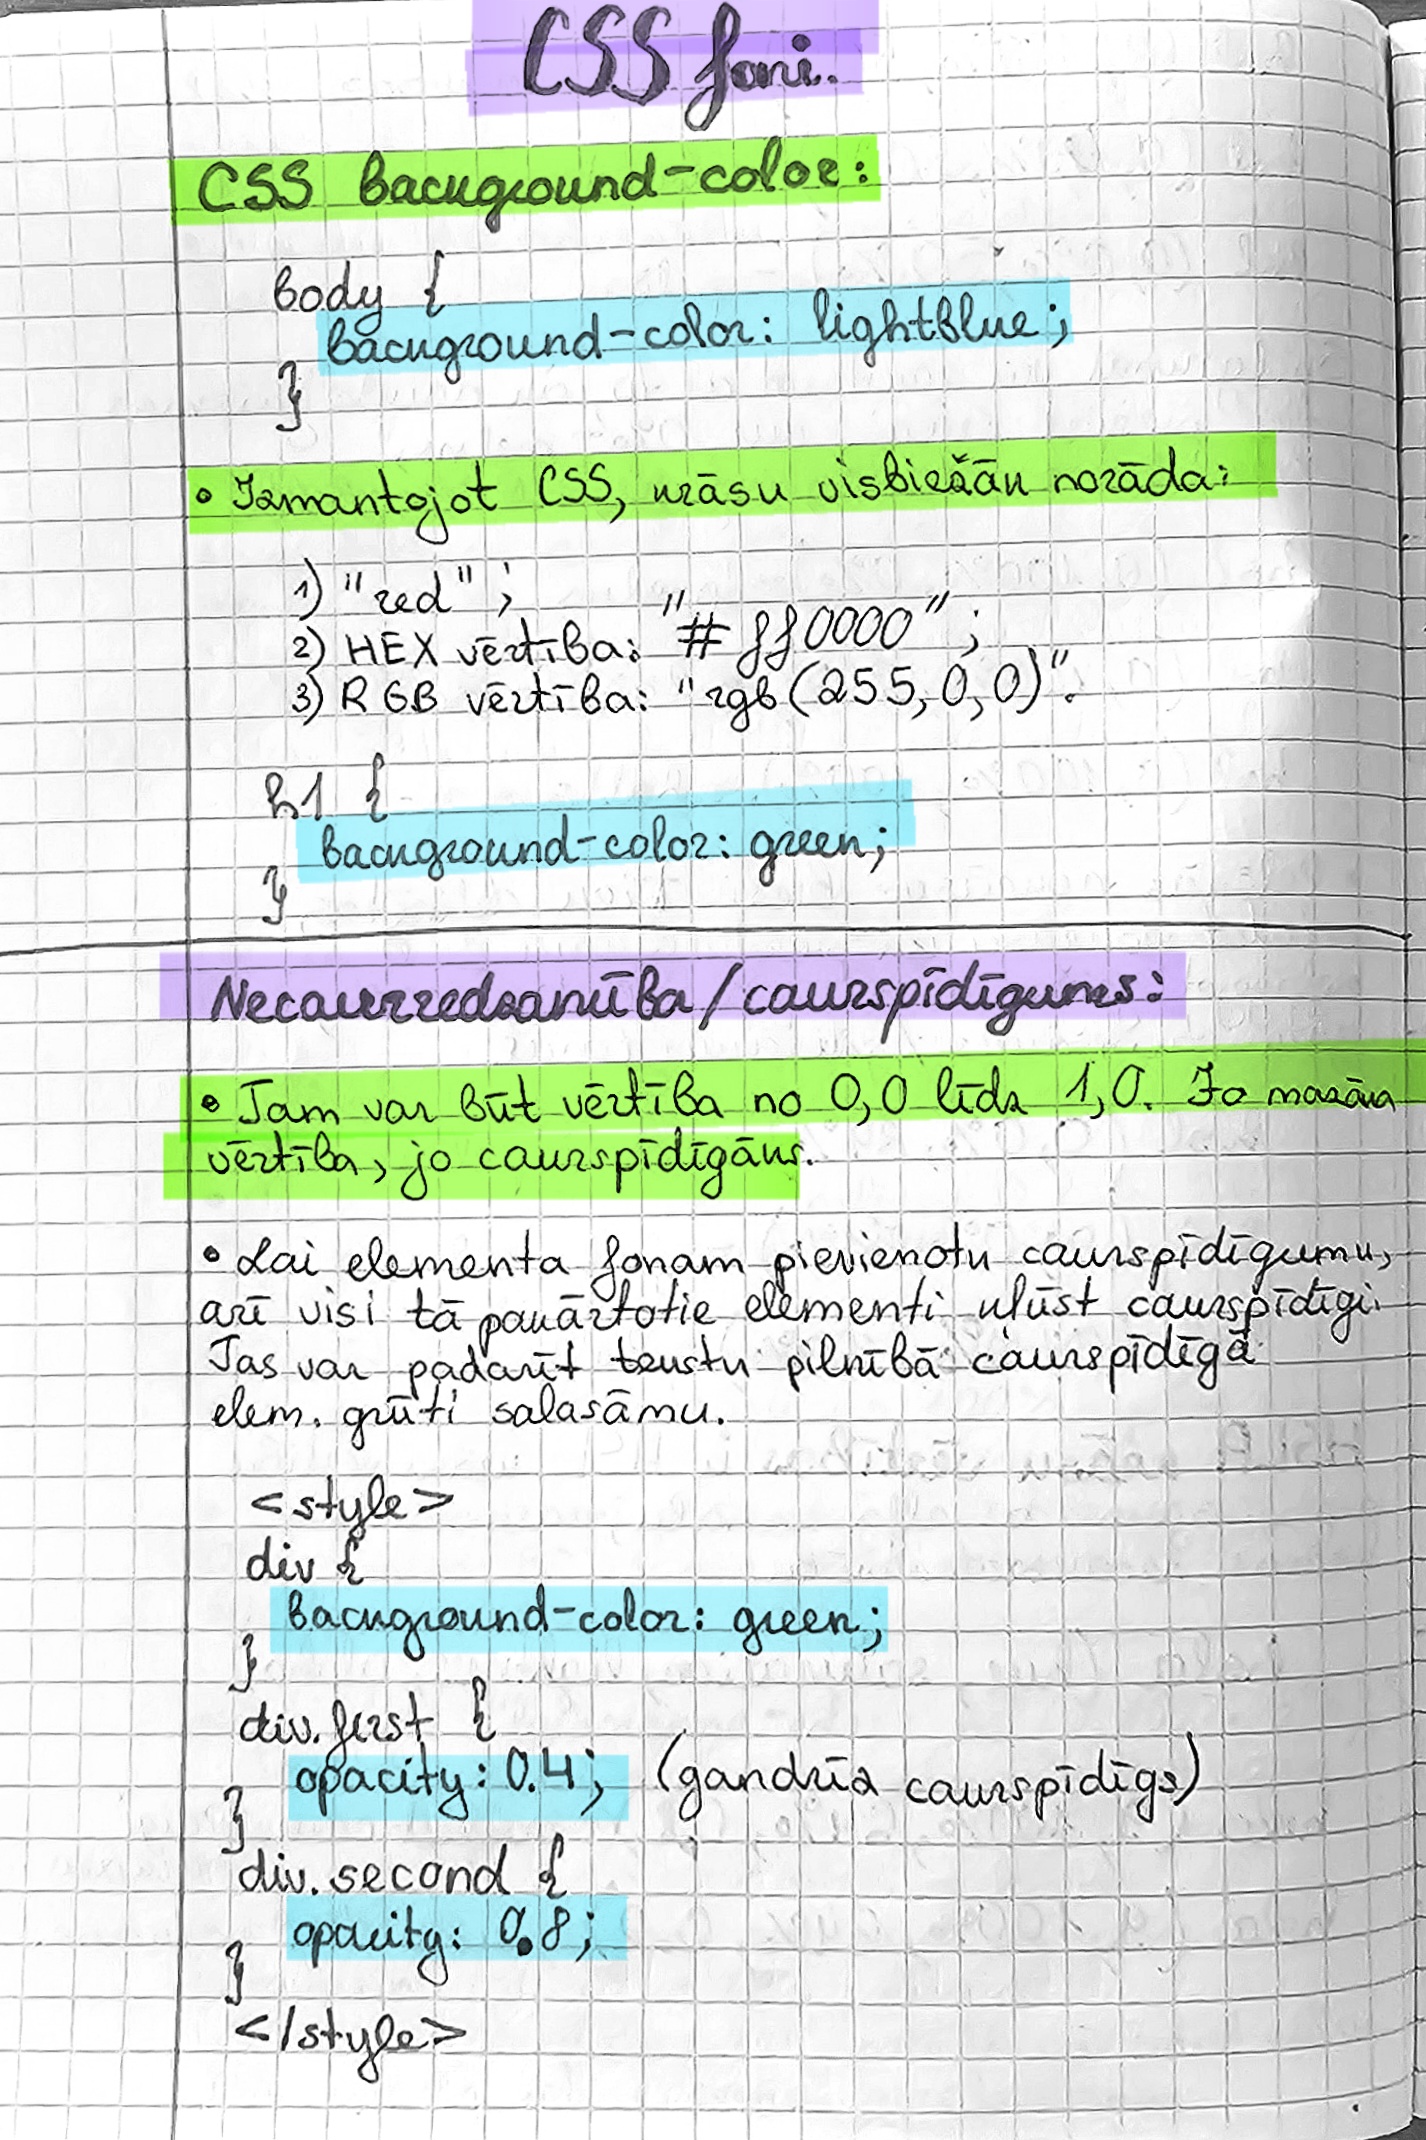 CSS foni.
CSS background-color:
body {
background-color: lightblue;
}
• Izmantojot CSS, krāsu visbiežāk norāda:
1) "red" ;
2) HEX vērtība: "#ff0000" ;
3) RGB vērtība: "rgb(255,0,0)".
h1 {
background-color: green;
}
Necaurredzamība/caurspīdīgums:
• Tam var būt vērtība no 0,0 līdz 1,0. Jo mazāka
vērtība, jo caurspīdīgāks.
• Lai elementa fonam pievienotu caurspīdīgumu,
arī visi tā pakārtotie elementi kļūst caurspīdīgi.
Tas var padarīt tekstu pilnībā caurspīdīgā
elem. grūti salasāmu.
<style>
div {
background-color: green;
}
div.first {
opacity: 0.4; (gandrīz caurspīdīgs)
}
div.second {
opacity: 0.8;
}
</style>